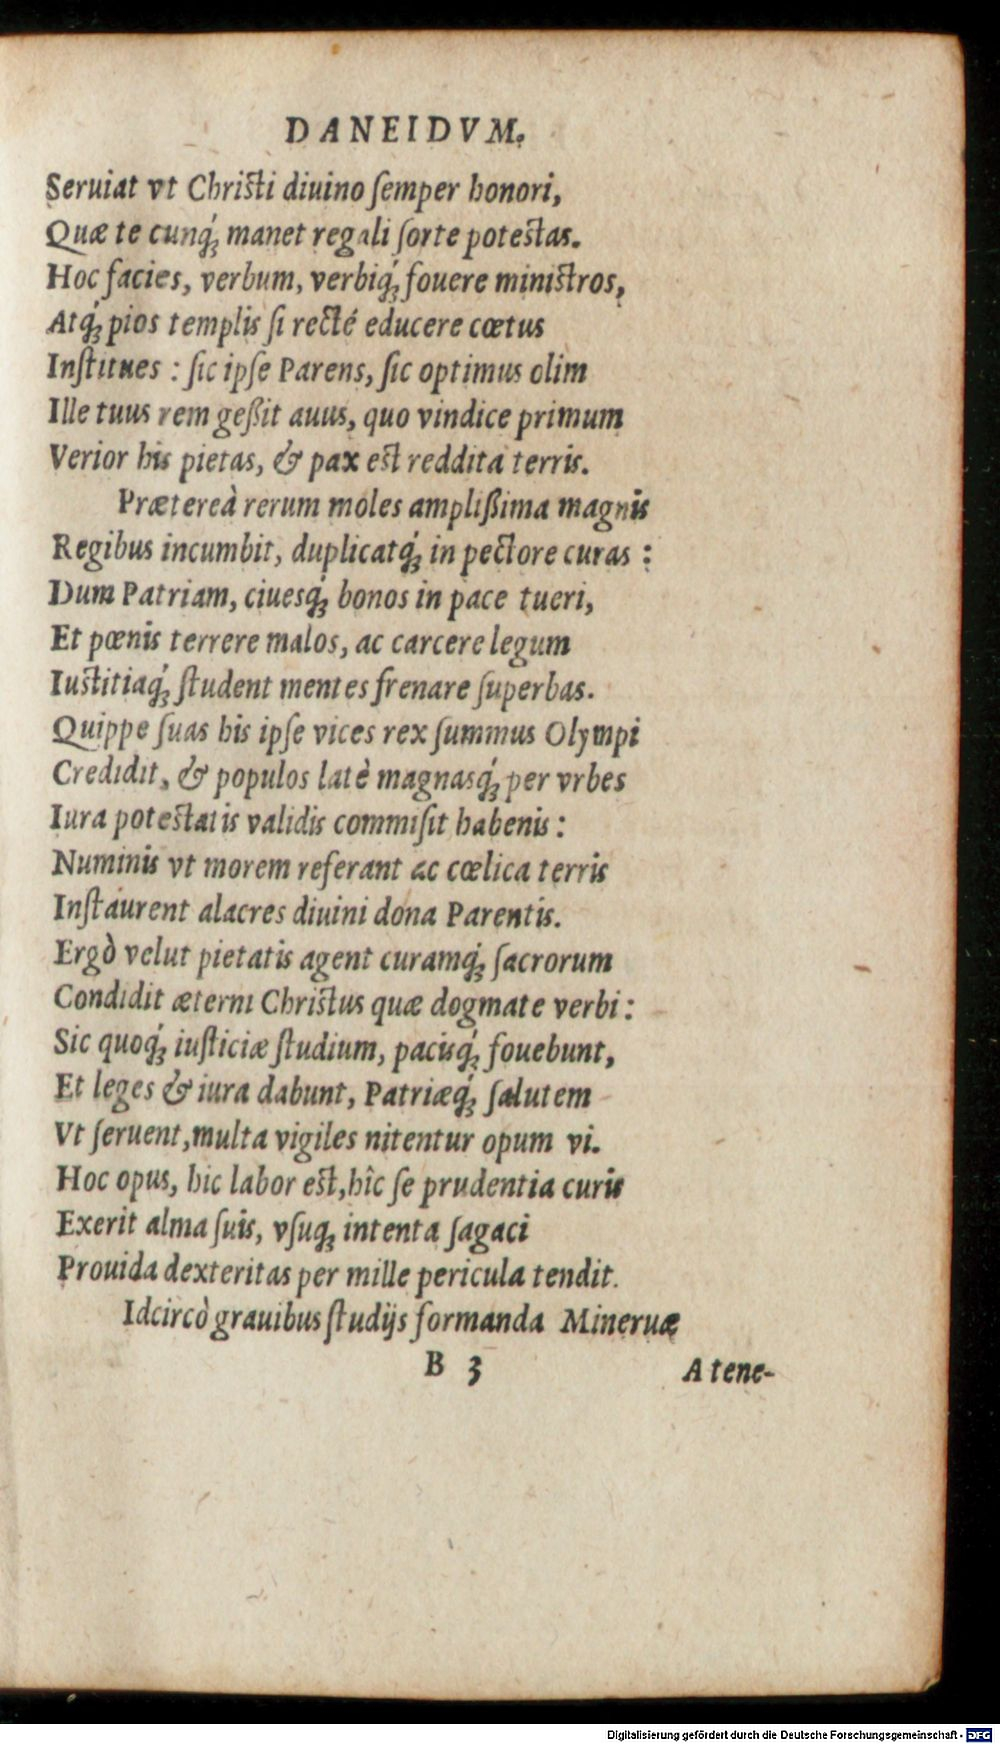 DANEIDVM.
Seruiat vt Christi diuino ſemper honori,
Quæ te cunq́; manet regali ſorte potestas.
Hoc facies, verbum, verbiq́; fouere ministros,
Atq́; pios templis ſi recté educere cœtus
Inſtitues : ſic ipſe Parens, ſic optimus olim
Ille tuus rem geßit auus, quo vindice primum
Verior his pietas, & pax est reddita terris.
Prætereà rerum moles amplißima magnis
Regibus incumbit, duplicatq́; in pectore curas :
Dum Patriam, ciuesq́; bonos in pace tueri,
Et pœnis terrere malos, ac carcere legum
Iustitiaq́; ſtudent mentes frenare ſuperbas.
Quippe ſuas his ipſe vices rex ſummus Olympi
Credidit, & populos latè magnasq́; per vrbes
Iura potestatis validis commiſit habenis :
Numinis vt morem referant ac cœlica terris
Inſtaurent alacres diuini dona Parentis.
Ergò velut pietatis agent curamq́; ſacrorum
Condidit æterni Christus quæ dogmate verbi :
Sic quoq́; iuſticiæ ſtudium, pacisq́; fouebunt,
Et leges & iura dabunt, Patriæq́; ſalutem
Vt ſeruent, multa vigiles nitentur opum vi.
Hoc opus, hic labor est, hîc ſe prudentia curis
Exerit alma ſuis, vſuq; intenta ſagaci
Prouida dexteritas per mille pericula tendit.
Idcircò grauibus ſtudijs formanda Mineruæ
B 3 A tene-
Digitalisierung gefördert durch die Deutsche Forschungsgemeinschaft - DFG